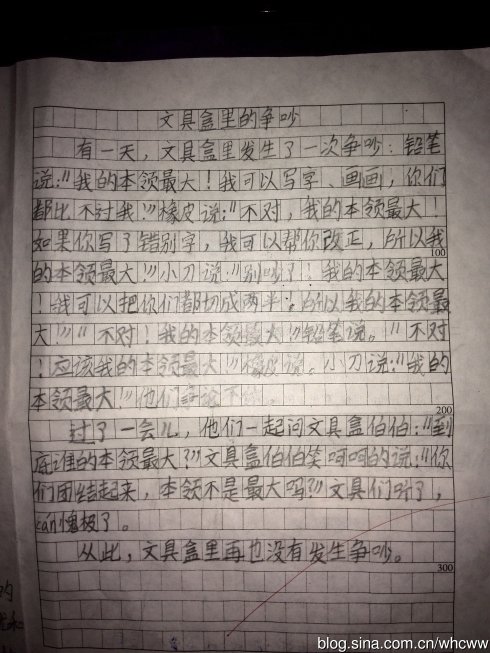 文具盒里的争吵
有一天，文具盒里发生了一次争吵：铅笔
说：“我的本领最大！我可以写字、画画，你们
都比不过我！”橡皮说：“不对，我的本领最大！
如果你写了错别字，我可以帮你改正，所以我
的本领最大！”小刀说：“别吵了！我的本领最大
！我可以把你们都切成两半。所以我的本领最
大！”“不对！我的本领最大！”铅笔说。“不对
！应该我的本领最大！”橡皮说。小刀说：“我的
本领最大！”他们争论不
过了一会儿，他们一起问文具盒伯伯：“到
底谁的本领最大？”文具盒伯伯笑呵呵的说：“你
们团结起来，本领不是最大吗？”文具们听了，
cán愧极了。
从此，文具盒里再也没有发生争吵。
100
200
300
blog.sina.com.cn/whcww